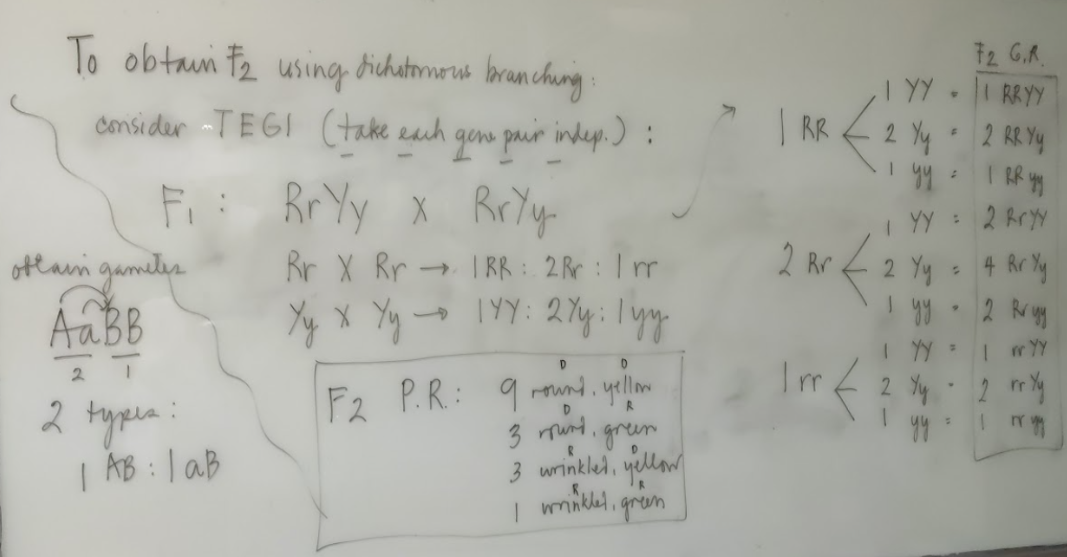 To obtain F2 using dichotomous branching:
consider TEGI (take each gene pair indep.) :
F1 : RrYy x RrYy
Rr X Rr → 1RR : 2Rr : 1 rr
Yy X Yy → 1YY : 2Yy : 1yy
obtain gametes
AaBB
2 1
2 types:
1 AB : 1 aB
F2 P.R.: 9 round, yellow
D D
3 round, green
D R
3 wrinkled, yellow
R D
1 wrinkled, green
R R
F2 G.R.
1 RR
1 YY = 1 RRYY
2 Yy = 2 RRYy
1 yy = 1 RRyy
2 Rr
1 YY = 2 RrYY
2 Yy = 4 RrYy
1 yy = 2 Rryy
1 rr
1 YY = 1 rrYY
2 Yy = 2 rrYy
1 yy = 1 rryy